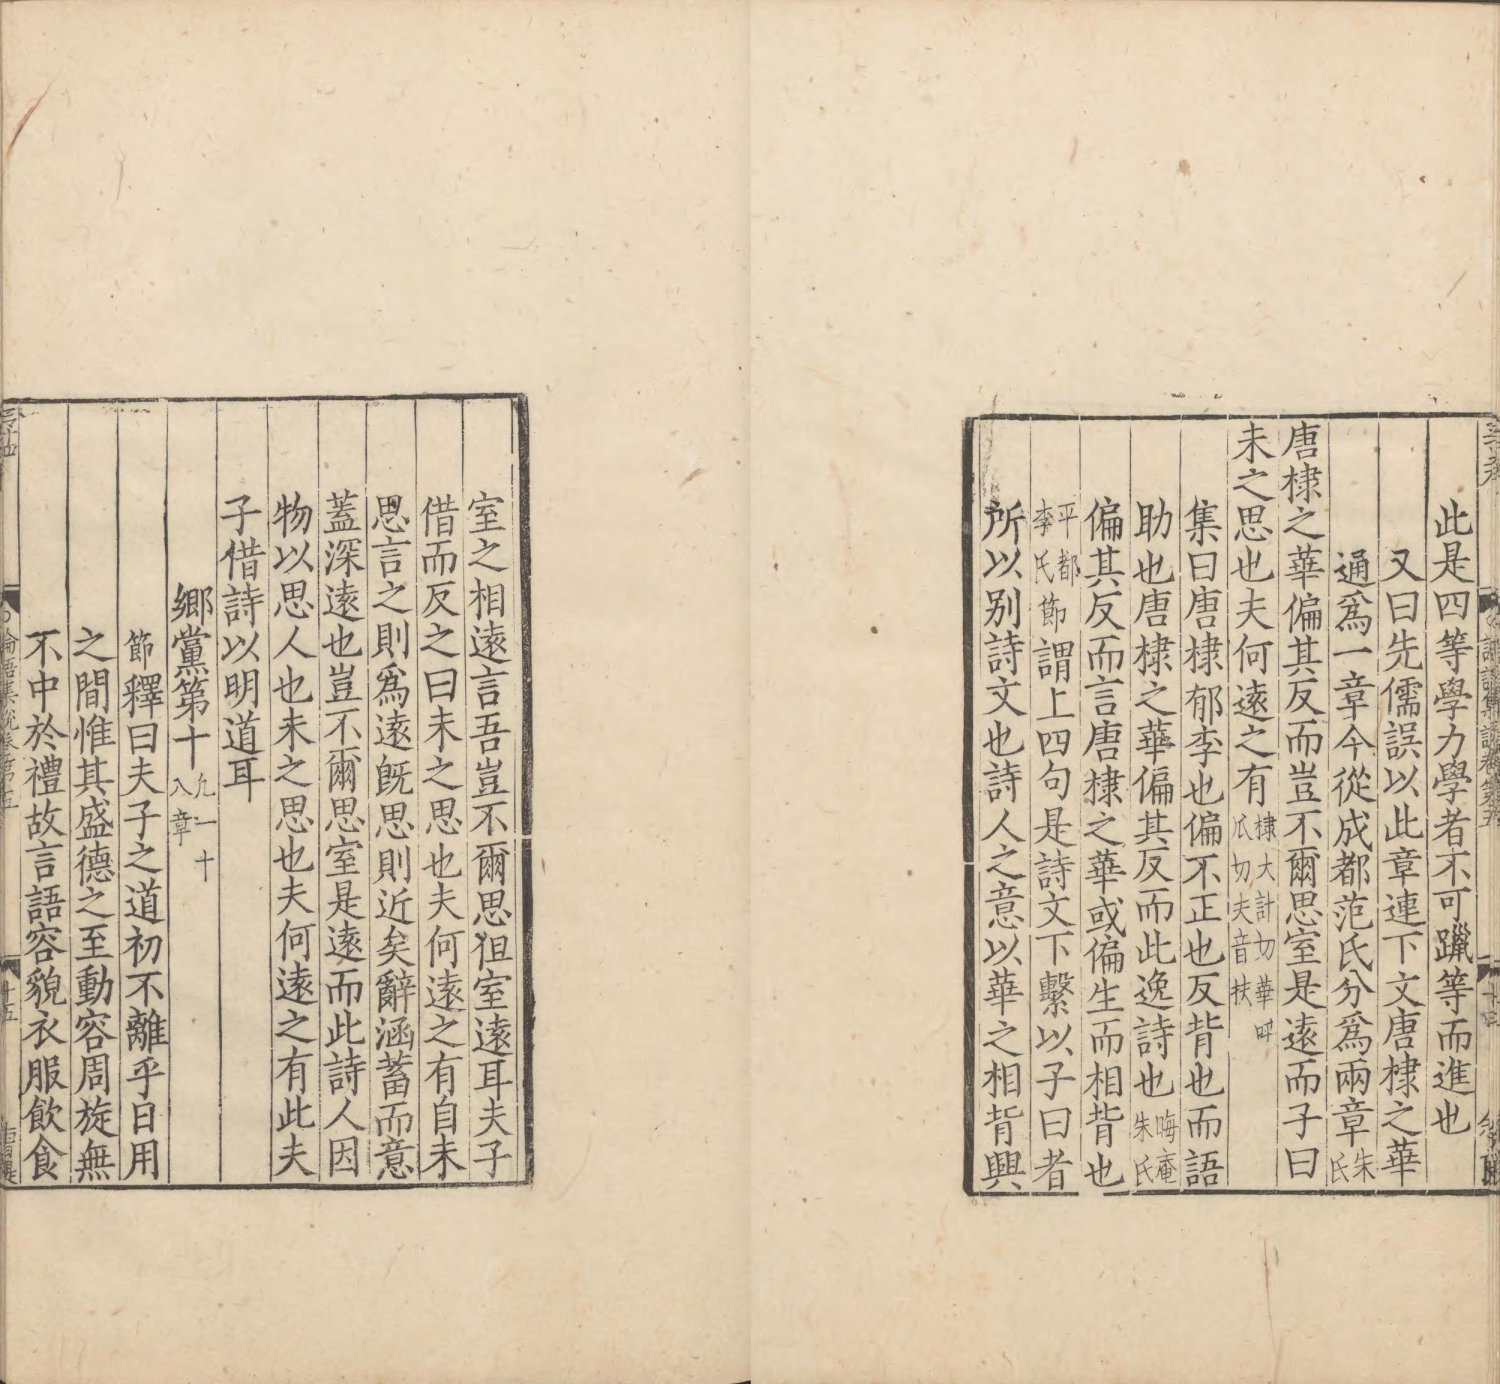 此是四等學力學者不可躐等而進也
又曰先儒誤以此章連下文唐棣之華
通爲一章今從成都范氏分爲兩章朱氏
唐棣之華偏其反而豈不爾思室是遠而子曰
未之思也夫何遠之有棣大計切華呼瓜切夫音扶
集曰唐棣郁李也偏不正也反背也而語
助也唐棣之華偏其反而此逸詩也晦庵朱氏
偏其反而言唐棣之華或偏生而相背也
平都李氏節謂上四句是詩文下繫以子曰者
所以别詩文也詩人之意以華之相背興
室之相遠言吾豈不爾思徂室遠耳夫子
借而反之曰未之思也夫何遠之有自未
思言之則爲遠旣思則近矣辭涵蓄而意
蓋深遠也豈不爾思室是遠而此詩人因
物以思人也未之思也夫何遠之有此夫
子借詩以明道耳
鄉黨第十凡一十八章
節釋曰夫子之道初不離乎日用
之間惟其盛德之至動容周旋無
不中於禮故言語容貌衣服飲食